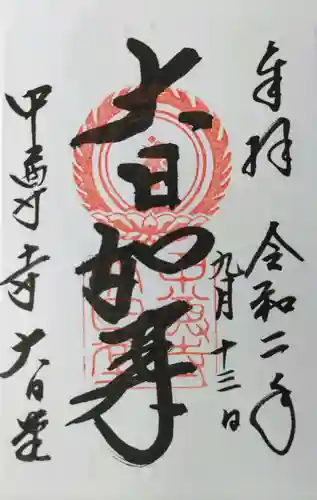 奉拝
令和二年
九月十三日
大日如来
中尊寺大日堂